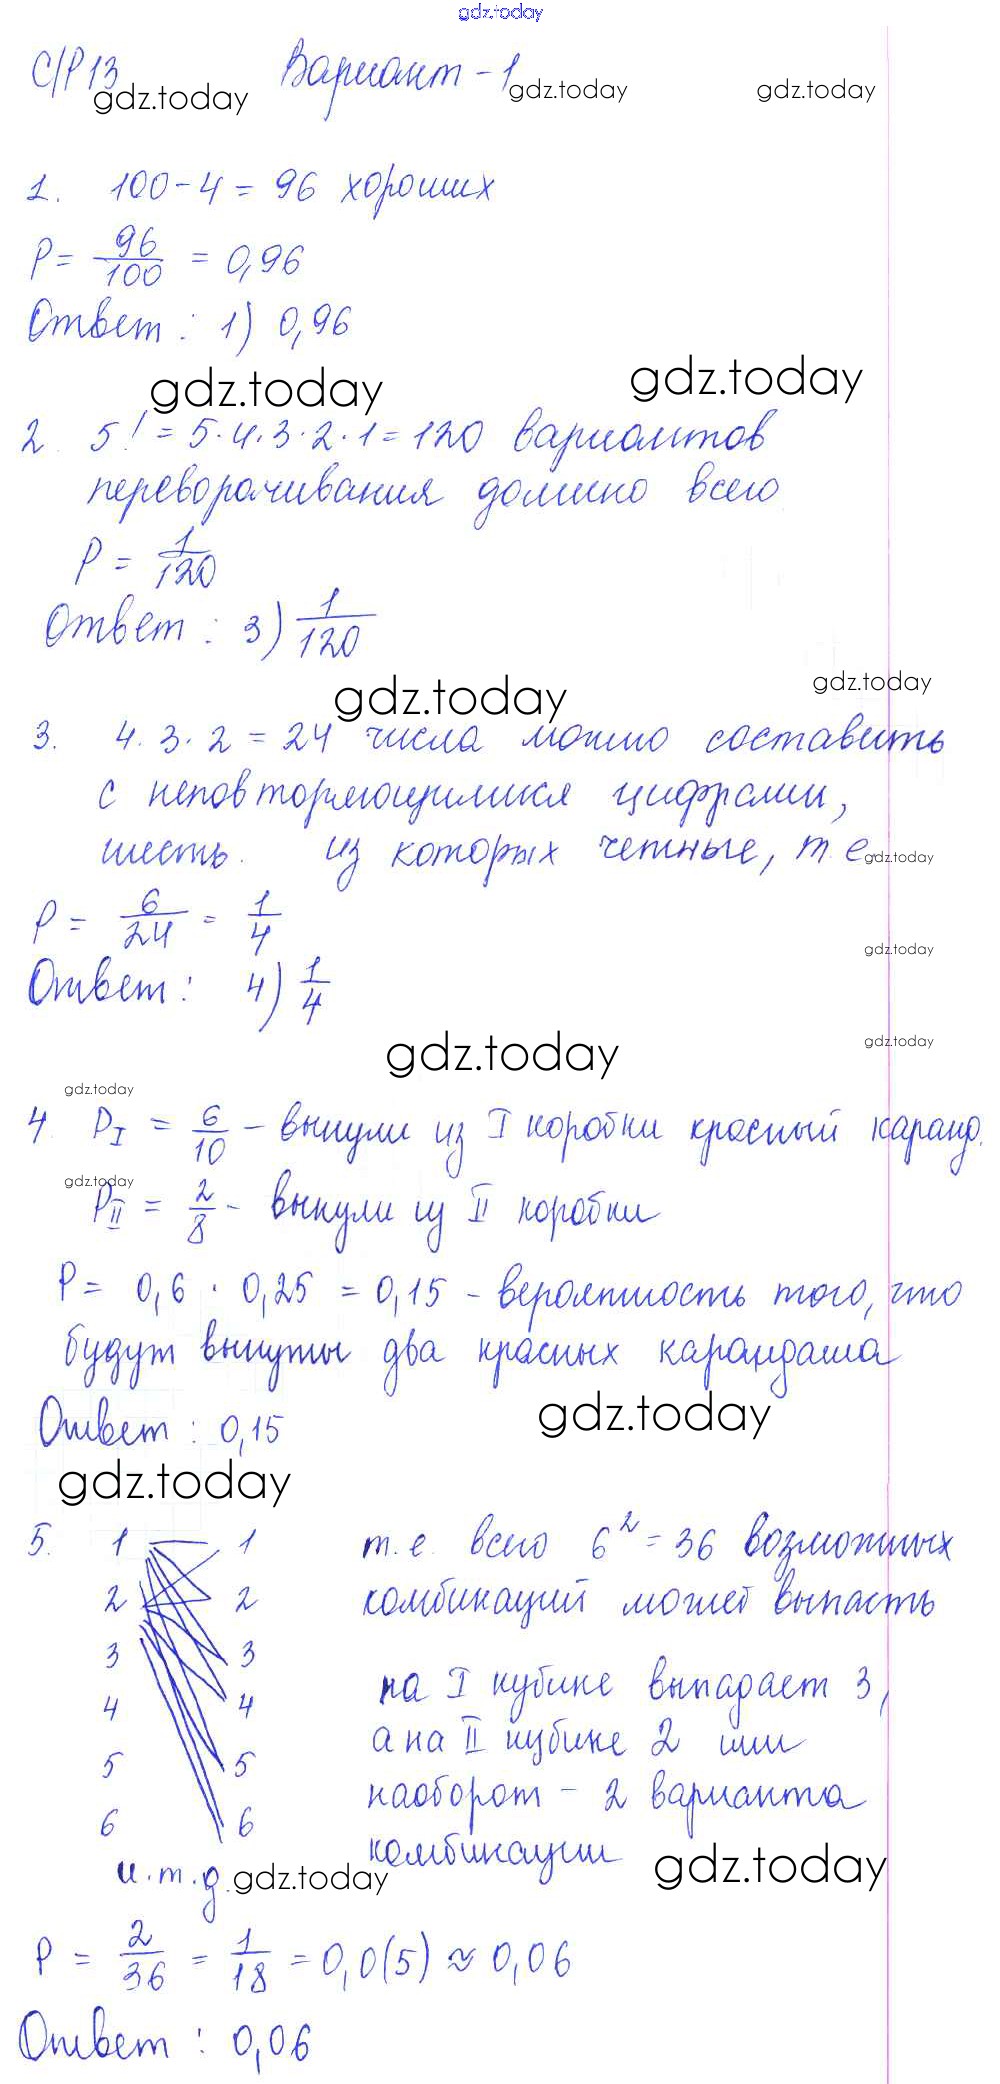 gdz.today
С/Р 13 Вариант - 1
gdz.today gdz.today gdz.today
1. 100 - 4 = 96 хороших
P = 96/100 = 0,96
Ответ: 1) 0,96
gdz.today gdz.today
2. 5! = 5·4·3·2·1 = 120 вариантов
переворачивания домино всего
P = 1/120
Ответ: 3) 1/120
gdz.today gdz.today
3. 4·3·2 = 24 числа можно составить
с неповторяющимися цифрами,
шесть из которых четные, т.е. gdz.today
P = 6/24 = 1/4
gdz.today
Ответ: 4) 1/4
gdz.today gdz.today
gdz.today
4. P_I = 6/10 - вынули из I коробки красный каранд.
gdz.today
P_II = 2/8 - вынули из II коробки
P = 0,6 · 0,25 = 0,15 - вероятность того, что
будут вынуты два красных карандаша
Ответ: 0,15
gdz.today
gdz.today
5. 1 1 т.е. всего 6² = 36 возможных
2 2 комбинаций может выпасть
3 3
на I кубике выпадает 3,
4 4
а на II кубике 2 или
5 5
наоборот - 2 варианта
6 6
комбинации
и.т.д. gdz.today gdz.today
P = 2/36 = 1/18 = 0,0(5) ≈ 0,06
Ответ: 0,06